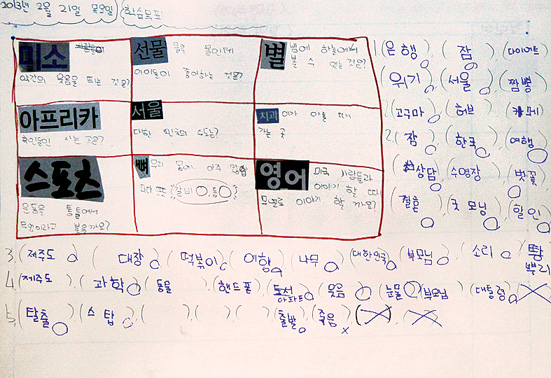 2013년 2월 21일 목요일 학습도구
미소
약간의 웃음을 띄는 것은?
선물
아이들이 좋아하는 것은?
별 밤에 하늘에서
볼 수 있는 것은?
아프리카
흑인들이 사는 곳은?
서울
대한민국의 수도는?
치과 이가 아플 때
가는 곳
스포츠
운동을 통틀어서
무엇이라고 부를까요?
뼈 우리 몸에 아주 많
영어 미국 사람들과
이야기 할 때
무엇으로 이야기 할까요?
1.(은행) (잠) (다이어트)
(위기) (서울) (짬뽕)
(고구마) (허브)
2.(잠) (한국) (여행)
(상담) (수영장) (벚꽃)
(결혼) (굿모닝) (할인)
3.(제주도) (대장) (떡볶이) (여행) (나무) (대한민국) (부모님) (소리) (뿌리)
4.(제주도) (과학) (동물) (핸드폰) (웃음) (눈물) (부모님) (대통령)
아파트
(탈출) (스탑) ( ) ( ) (출발) (죽음)